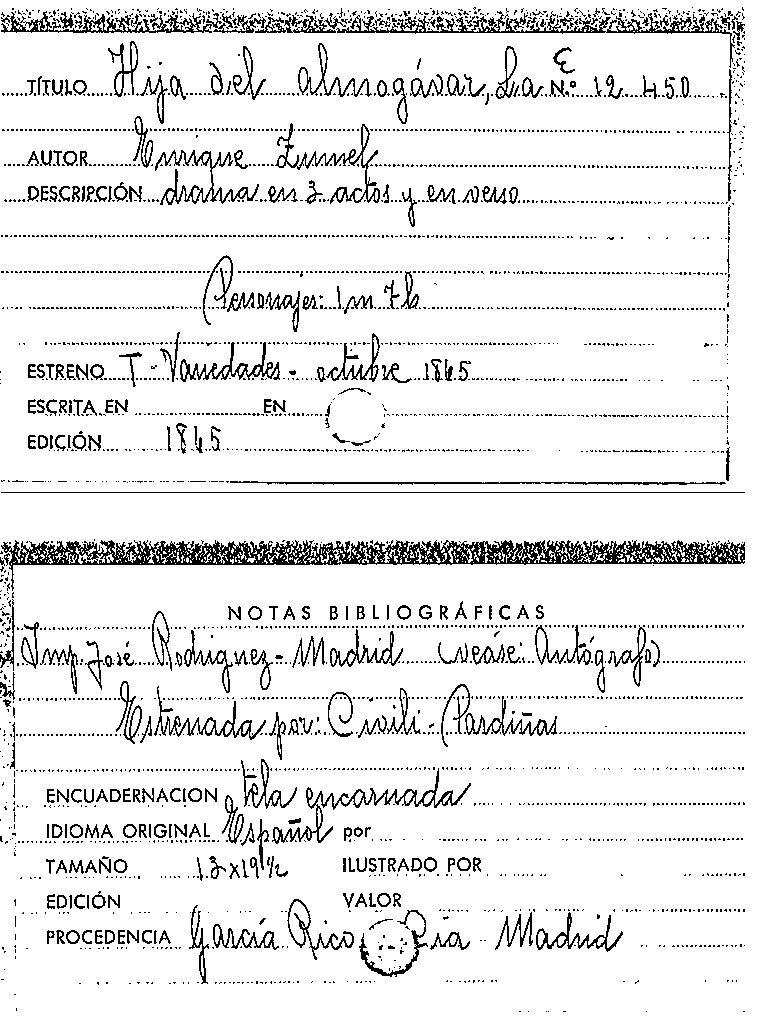 TÍTULO Hija del almogávar, La E N.º 12 450
AUTOR Enrique Zumel
DESCRIPCIÓN drama en 3 actos y en verso
Personajes: 1m 7h
ESTRENO T - Variedades - octubre 1865
ESCRITA EN EN
EDICIÓN 1865
NOTAS BIBLIOGRÁFICAS
Imp. José Rodriguez - Madrid (veáse: Autógrafo)
Estrenada por: Civili - Pardiñas
ENCUADERNACION tela encarnada
IDIOMA ORIGINAL Español por
TAMAÑO 13x19½ ILUSTRADO POR
EDICIÓN VALOR
PROCEDENCIA García Rico Madrid